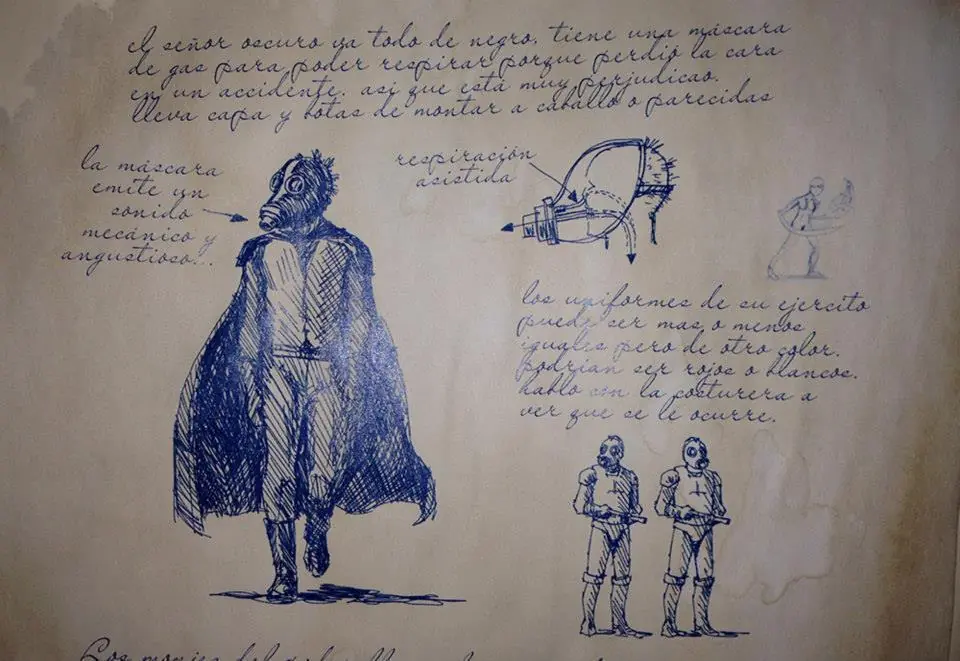 el señor oscuro va todo de negro. tiene una máscara
de gas para poder respirar porque perdió la cara
en un accidente. así que está muy perjudicao.
lleva capa y botas de montar a caballo o parecidas
la máscara
emite un
sonido
mecánico y
angustioso...
respiración
asistida
los uniformes de su ejercito
puede ser mas o menos
iguales pero de otro color.
podrían ser rojos o blancos.
hablo con la costurera a
ver que se le ocurre.
Los